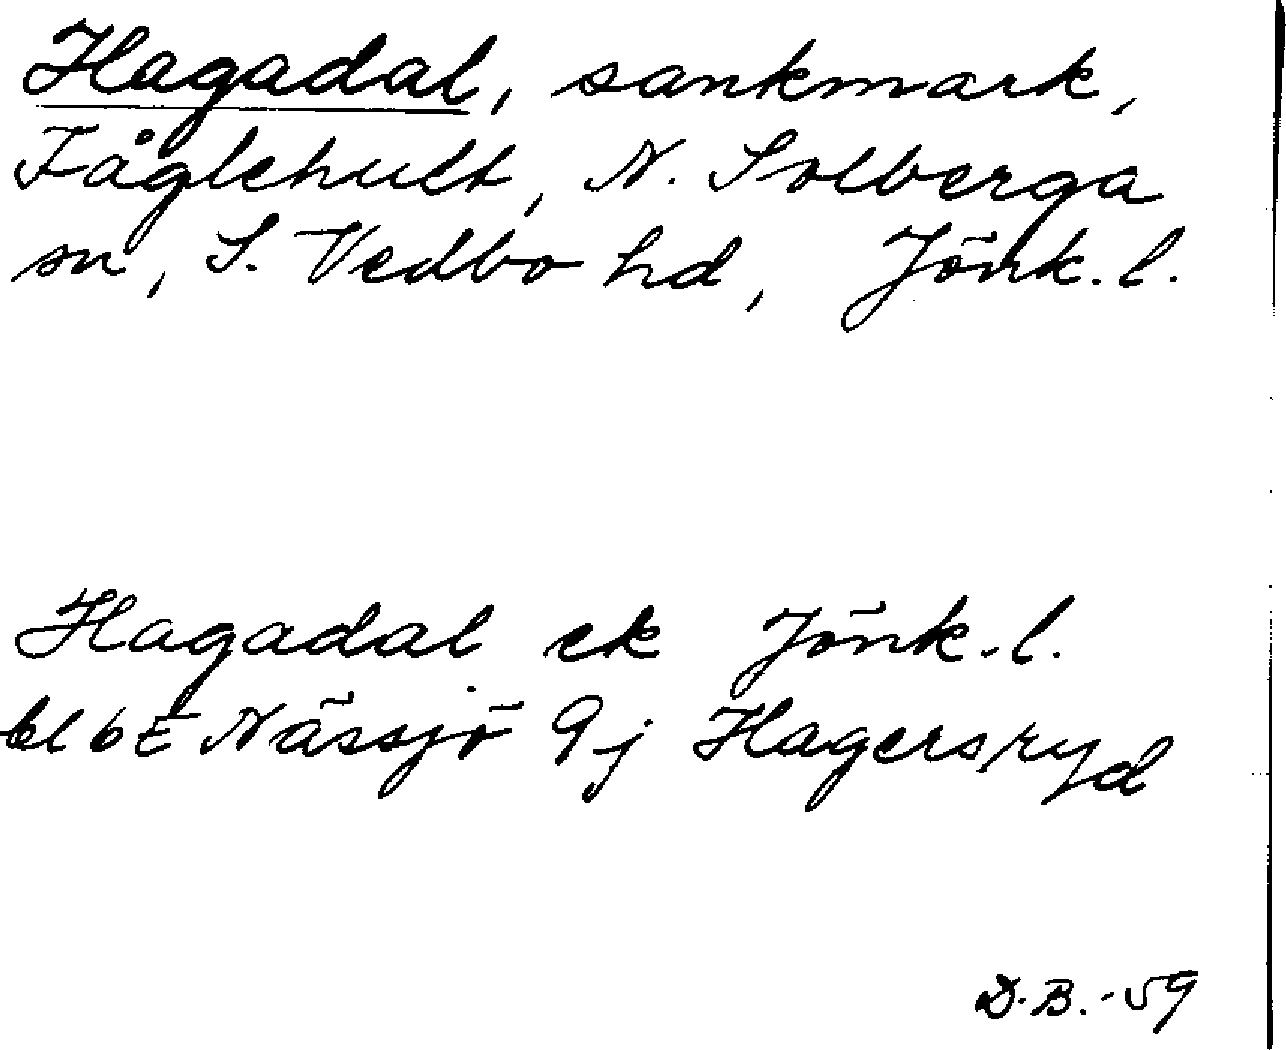 Hagadal, sankmark,
Fåglehult, N. Solberga
sn, S. Vedbo hd, Jönk. l.
Hagadal ek Jönk. l.
bl 6E Nässjö 9j Hagersryd
D. B. -59